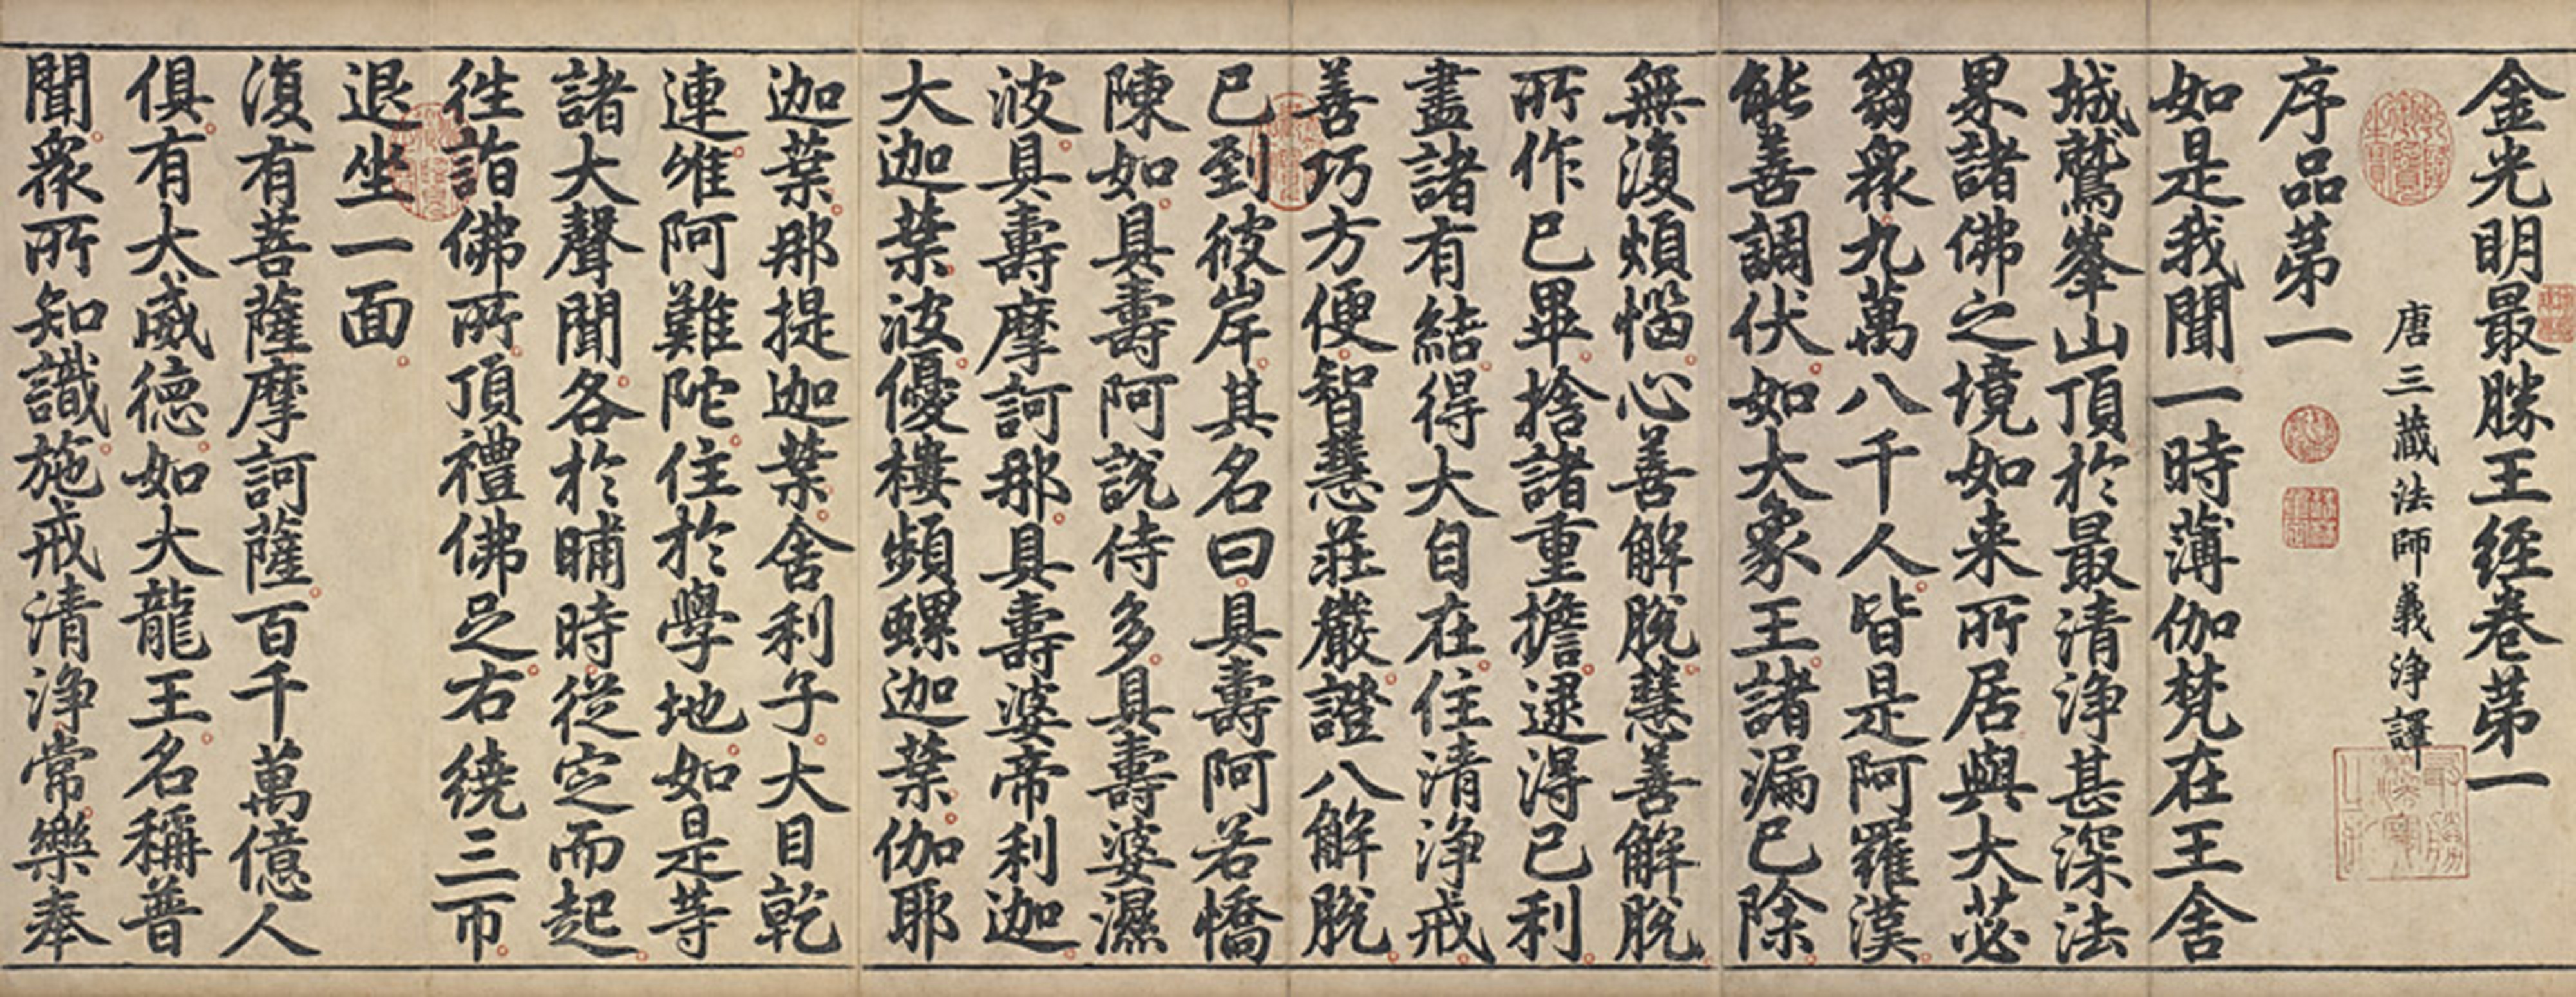 金光明最勝王経卷苐一
唐三藏法師義淨譯
序品苐一
如是我聞一時薄伽梵在王舍
城鷲峯山頂於最清淨甚深法
界諸佛之境如来所居與大苾
芻衆九萬八千人皆是阿羅漢
能善調伏如大象王諸漏已除
無復煩惱心善解脫慧善解脫
所作已畢捨諸重擔逮得己利
盡諸有結得大自在住清淨戒
善巧方便智慧莊嚴證八解脫
已到彼岸其名曰具壽阿若憍
陳如具壽阿說侍多具壽婆濕
波具壽摩訶那具壽婆帝利迦
大迦葉波優樓頻螺迦葉伽耶
迦葉那提迦葉舍利子大目乾
連唯阿難陀住於學地如是等
諸大聲聞各於晡時從定而起
往詣佛所頂禮佛足右繞三帀
退坐一面
復有菩薩摩訶薩百千萬億人
俱有大威德如大龍王名稱普
聞衆所知識施戒清淨常樂奉